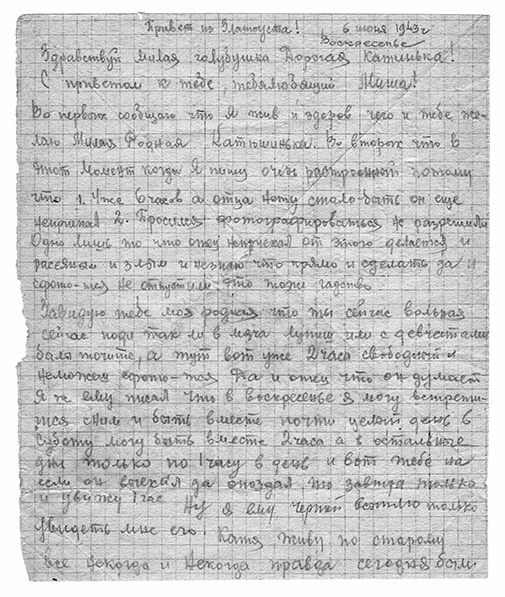 Привет из Златоуста! 6 июня 1943г
Воскресенье
Здравствуй милая голубушка Дорогая Катинька!
С приветом к тебе, тебялюбящий Миша!
Во первых сообщаю что Я жив и здоров чего и тебе же-
лаю Милая Родная Катюшинька. Во вторых что в
этот момент когда Я пишу очень расстроенный потому
что 1. Уже 6 часов а отца нету стало-быть он еще
неприехал 2. Просился фотографироваться не разрешили
Одно лишь то что отец неприехал от этого делаешся и
рассеяным и злым и незнаю что прямо и сделать да и
сфото-ся не отпустили это тоже гадство.
Завидую тебе моя родная что ты сейчас вольная
сейчас поди так ли в мяча лупиш или с девчетами
балакочите, а тут вот уже 2 часа свободный и
неможеш сфото-тся Да и отец что он думает
Я же ему писал что в воскресенье я могу встрети-
тся с ним и быть вместе почти целый день в
Субботу могу быть вместе 2 часа а в остальные
дни только по 1 часу в день и вот тебе на
если он выехал да опоздал то завтра только
и увижу 1 час Ну я ему чертей всыплю только
увидеть мне его! Катя живу по старому
все некогда и некогда правда сегодня был